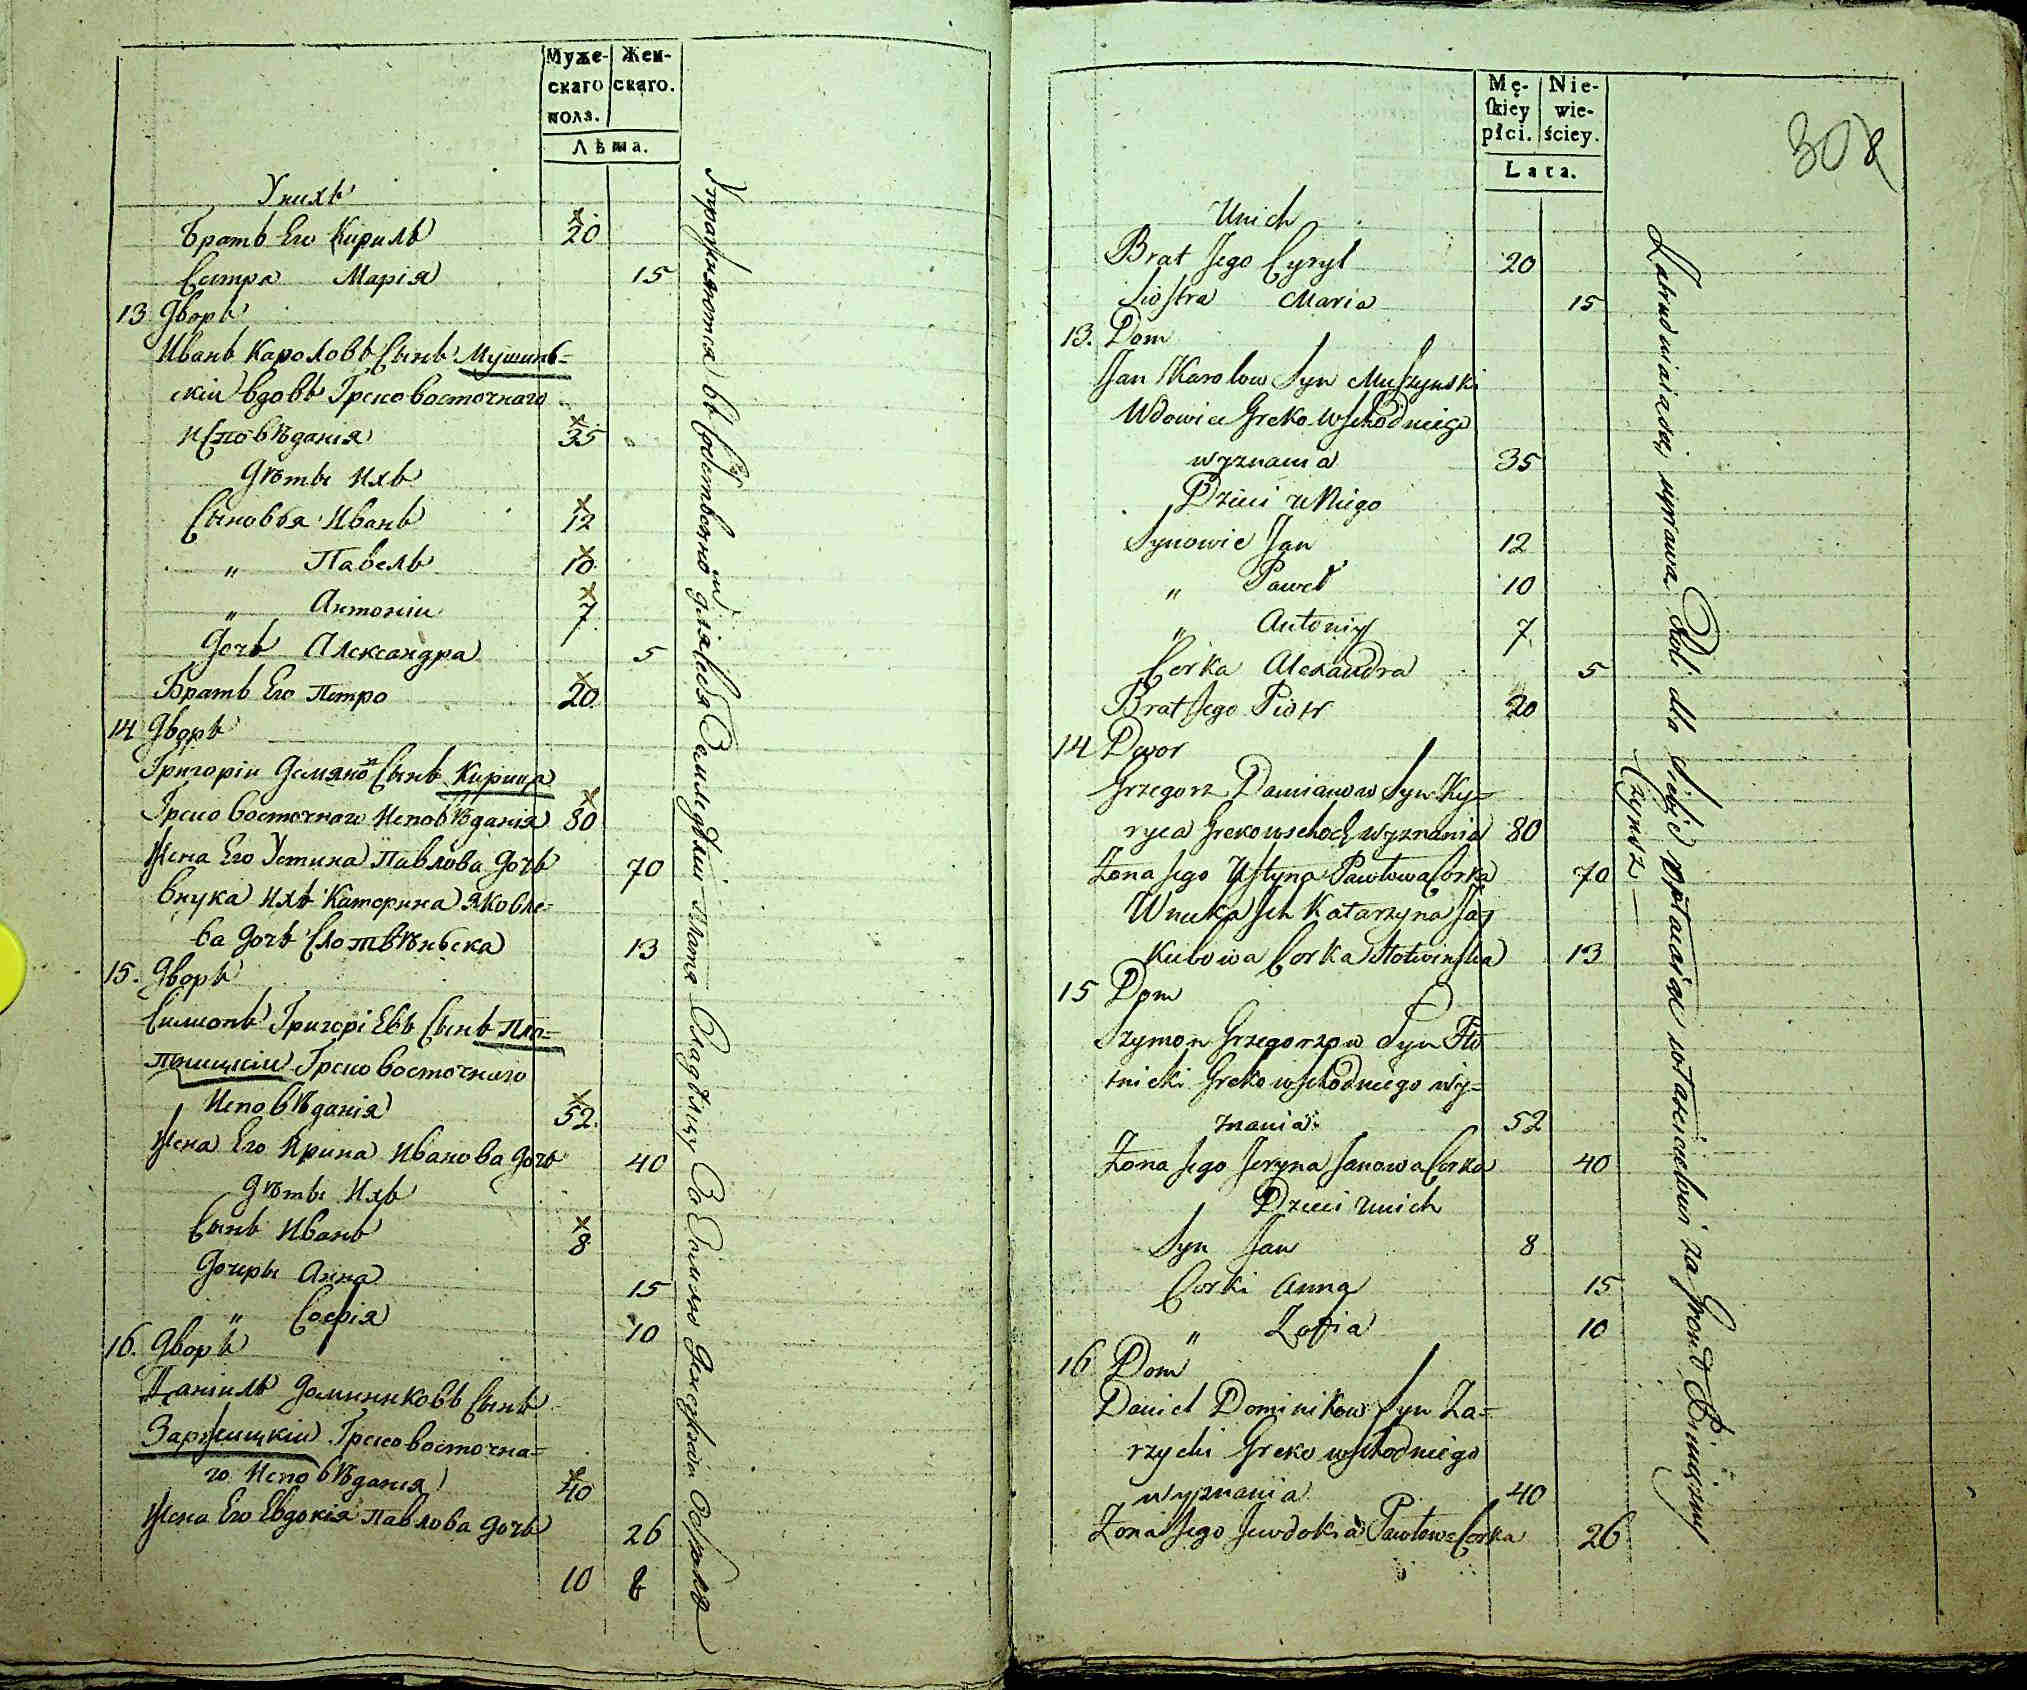 Муже-
скаго
пола.
Жен-
скаго.
Лѣта.
У нихъ
Братъ Его Кирилъ 20
Сестра Марія 15
13 Дворъ
Иванъ Кароловъ Сынъ Мушинь=
скій вдовъ Греко восточнаго
исповѣданія 35
Дѣты ихъ
Сыновья Иванъ 12
" Павелъ 10
" Антоній 7
Дочь Александра 5
Братъ Его Петро 20
14 Дворъ
Григорій Демяно Сынъ Кирица
Греко восточнаго Исповѣданія 80
Жена Его Устина Павлова Дочь 70
Внука ихъ Катерина Яковле=
ва Дочь Слотвѣньска 13
15. Дворъ
Симонъ Григоріевъ Сынъ Пло=
тницкій Греко восточнаго
Исповѣданія 52.
Жена Его Ирина Иванова Дочь 40
Дѣты Ихъ
Сынъ Иванъ 8
Дочеры Анна 15
" Софія 10
16. Дворъ
Даніилъ Доминиковъ Сынъ
Заржицкій Греко восточна=
го Исповѣданія 40
Жена Его Евдокія Павлова Дочь 26
10 8
Упражняются въ
для Себя
Платя
За Землю
Mę-
skiey
płci.
Nie-
wie-
ściey.
Lata.
308
Unich
Brat Jego Cyryl 20
Siostra Maria 15
13. Dom
Jan Karolow Syn Muszynski
Wdowiec Greko Wschodniego
wyznania 35
Dzieci u Niego
Synowie Jan 12
" Paweł 10
" Antoniy 7
Corka Alexandra 5
Brat Jego Piotr 20
14 Dwor
Grzegorz Damianow Syn Ky=
ryca Grekowschod. wyznania 80
Żona Jego Ustyna Pawłowa Corka 70
Wnuka Ich Katarzyna Ja=
kubowa Corka Słotwinska 13
15 Dom
Szymon Grzegorzow Syn Pło
tnicki Greko wschodniego wy=
znania 52
Żona Jego Jeryna Janowa Corka 40
Dzieci unich
Syn Jan 8
Corki Anna 15
" Zofia 10
16 Dom
Daniel Dominikow Syn Za=
rzycki Greko wschodniego
wyznania 40
Żona Jego Jewdokia Pawłowa Corka 26
Zatrudniaiąsię uprawą Roli dla Siebie opłacaiąc właścicielowi za Gront Pieniężny
Czynsz —